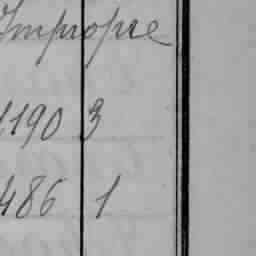 Impropre
1190 3
486 1